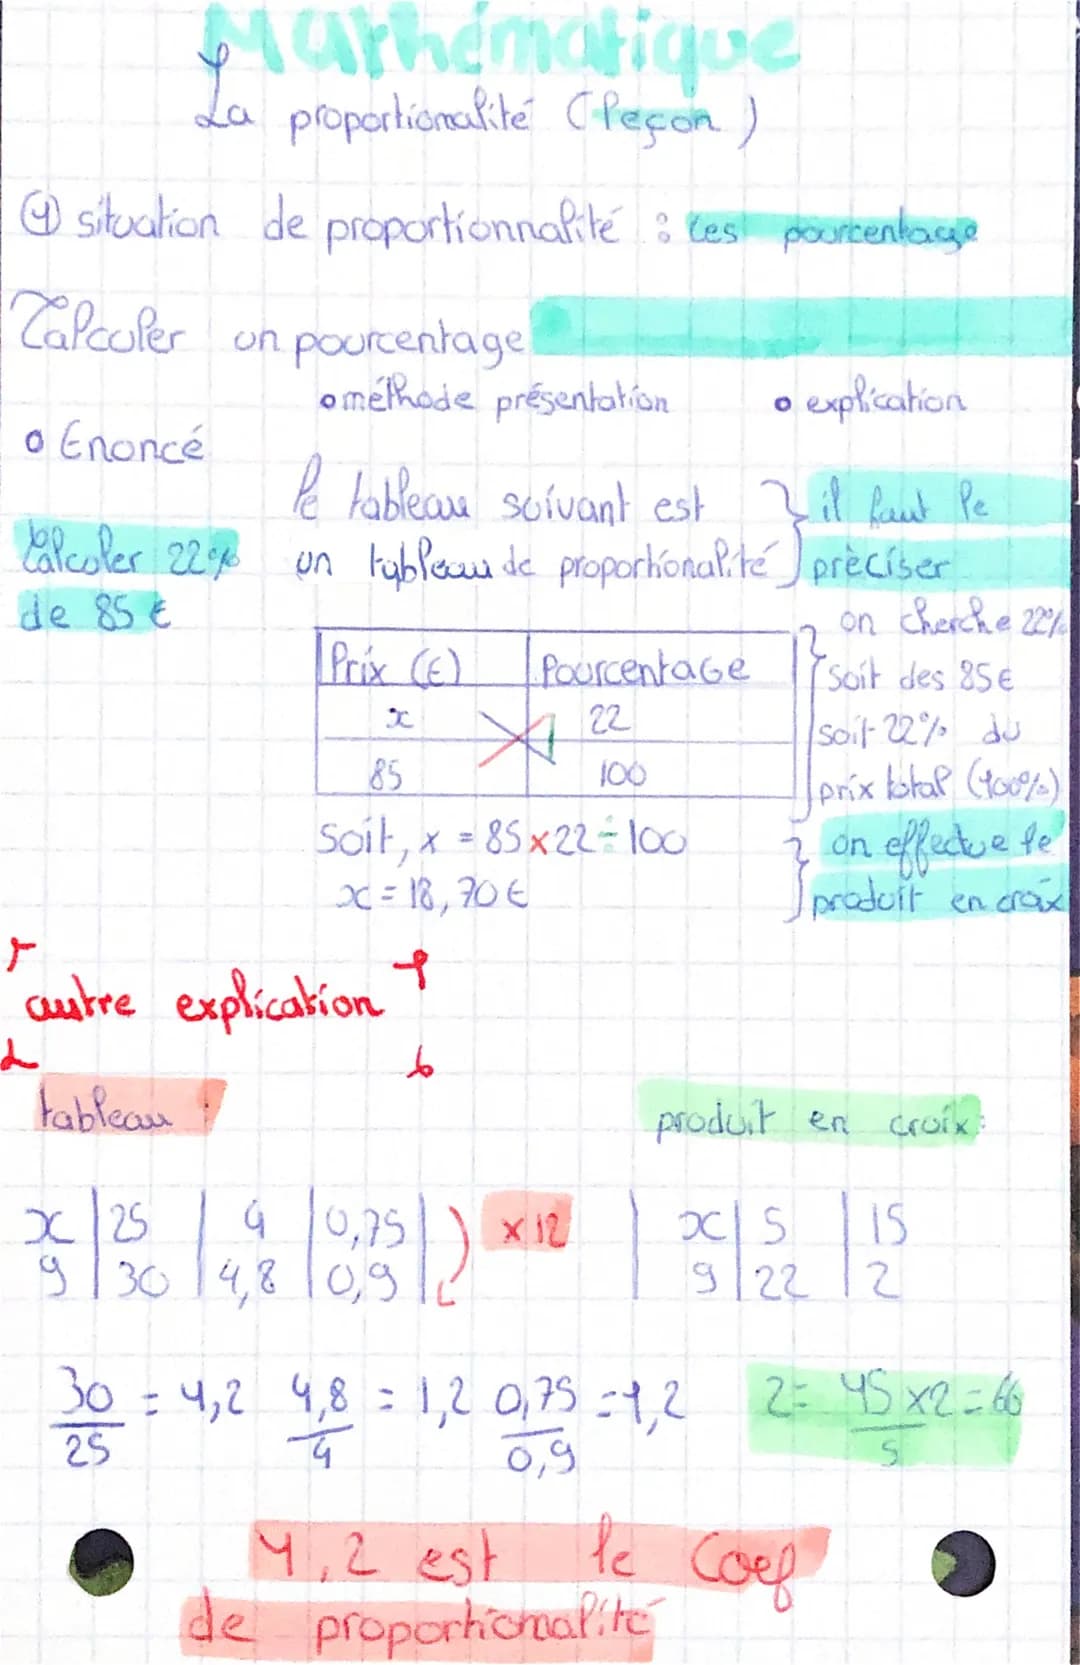 Mathématique
La proportionalité (leçon)
① situation de proportionnalité : les pourcentage
Calculer un pourcentage
o méthode présentation
o explication
o Enoncé
le tableau suivant est
il faut le
Calculer 22%
un tableau de proportionalité
prèciser
de 85 €
on cherche 22%
Prix (€) Pourcentage
soit des 85€
x 22
soit 22% du
85 100
prix total (100%)
Soit, x = 85 x 22 ÷ 100
on effectue le
x = 18,70 €
produit en croix
autre explication
tableau :
produit en croix :
x | 25 | 4 | 0,75 |
x 12
x | 5 | 15
y | 30 | 4,8 | 0,9 |
y | 22 | 2
30/25 = 1,2 4,8/4 = 1,2 0,75/0,9 = 1,2
2 = 45 x 2/5 = 66
1,2 est le Coef
de proportionalité